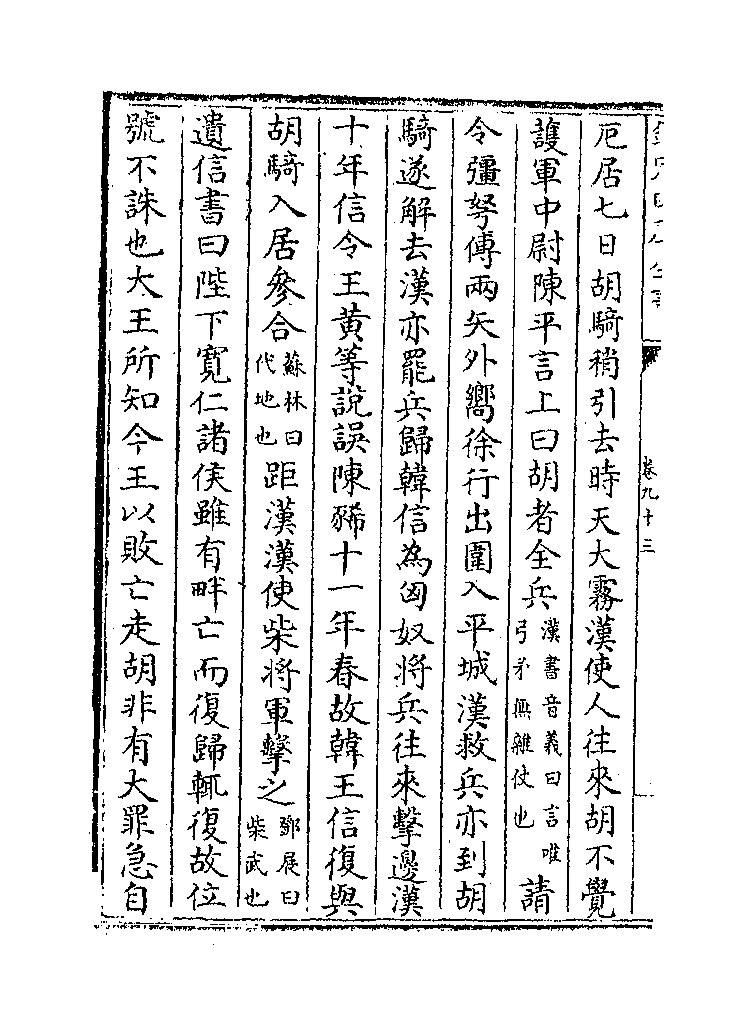 卷九十三
厄居七日胡騎稍引去時天大霧漢使人往來胡不覺
護軍中尉陳平言上曰胡者全兵漢書音義曰言唯弓矛無雜仗也請
令彊弩傅兩矢外嚮徐行出圍入平城漢救兵亦到胡
騎遂解去漢亦罷兵歸韓信為匈奴將兵往來擊邊漢
十年信令王黃等說誤陳豨十一年春故韓王信復與
胡騎入居參合蘇林曰代地也距漢漢使柴將軍擊之鄧展曰柴武也
遺信書曰陛下寬仁諸侯雖有畔亡而復歸輒復故位
號不誅也大王所知今王以敗亡走胡非有大罪急自